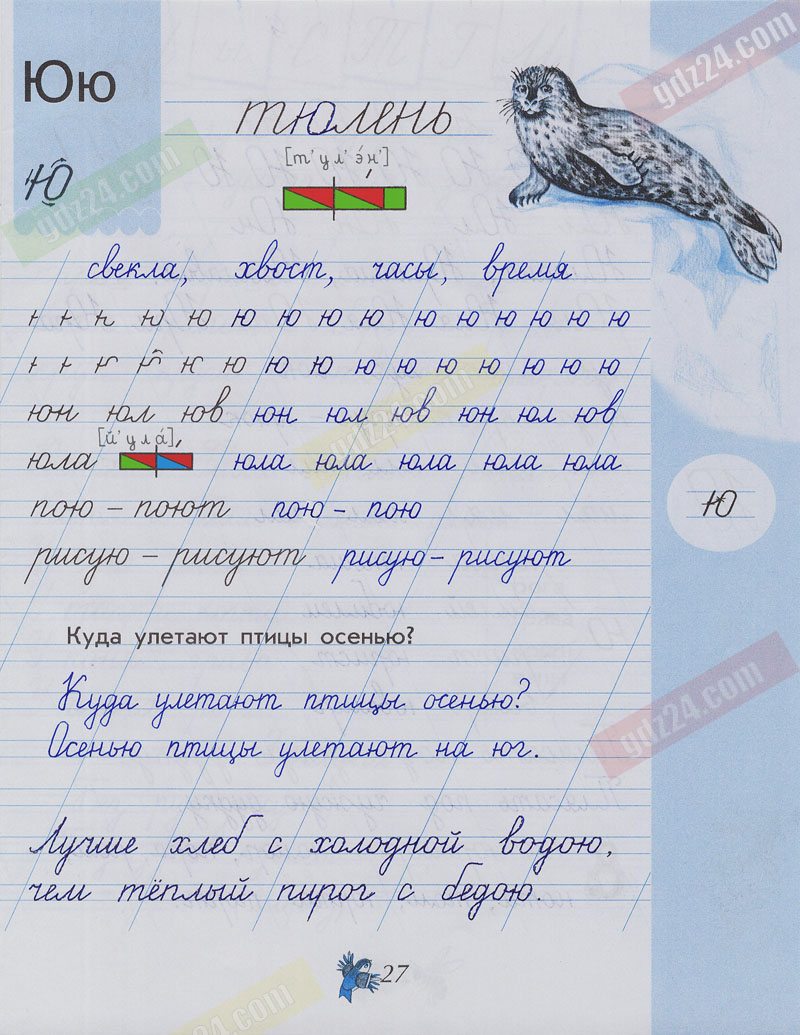 Юю
тюлень
[т' у л' э́ н']
Ю
свекла, хвост, часы, время
ю ю ю ю ю ю ю ю ю ю ю
ю ю ю ю ю ю ю ю ю ю
юн юл юв юн юл юв юн юл юв
[й' у л а́]
юла юла юла юла юла юла
пою – поют пою – пою
ю
рисую – рисуют рисую – рисуют
Куда улетают птицы осенью?
Куда улетают птицы осенью?
Осенью птицы улетают на юг.
Лучше хлеб с холодной водою,
чем тёплый пирог с бедою.
27
gdz24.com
gdz24.com
gdz24.com
gdz24.com
gdz24.com